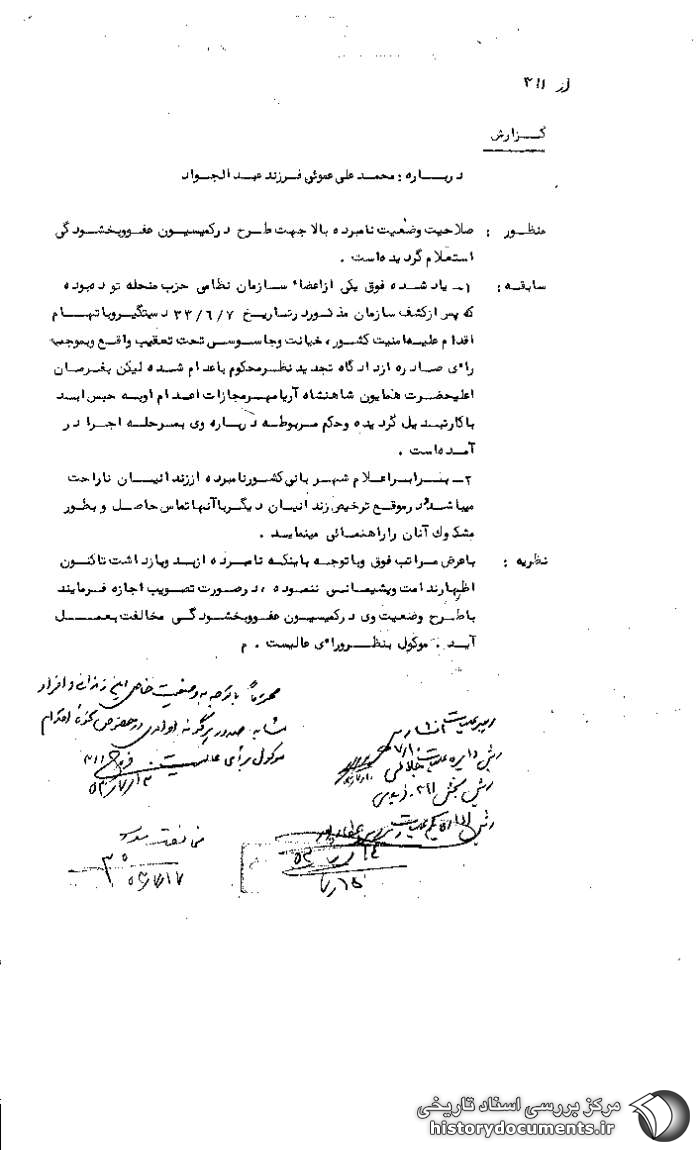 از ۳۱۱
گزارش
درباره : محمد علی عموئی فرزند عبدالجواد
منظور : صلاحیت وضعیت نامبرده بالا جهت طرح درکمیسیون عفووبخشودگی
استعلام گردیده‌است .
سابقه : ۱ـ یاد شده فوق یکی ازاعضاء سازمان نظامی حزب منحله توده‌بوده
که پس ازکشف سازمان مذکوردرتاریخ ۳۳/۶/۷ دستگیروباتهام
اقدام علیه‌امنیت کشور، خیانت وجاسوسی تحت تعقیب واقع وبموجب
رای صادره ازدادگاه تجدید نظرمحکوم باعدام شده لیکن بفرمان
اعلیحضرت همایون شاهنشاه آریامهرمجازات اعدام اوبه حبس ابد
باکارتبدیل گردیده وحکم مربوطه درباره وی بمرحله اجرا در
آمده‌است .
۲ـ بنابراعلام شهربانی کشورنامبرده اززندانیان ناراحت
میباشد ودرموقع ترخیص زندانیان دیگرباآنهاتماس حاصل و بطور
مشکوک آنان راراهنمائی مینماید .
نظریه : باعرض مراتب فوق وباتوجه باینکه نامبرده ازبدوبازداشت تاکنون
اظهارندامت وپشیمانی ننموده ، درصورت تصویب اجازه فرمایند
باطرح وضعیت وی درکمیسیون عفووبخشودگی مخالفت بعمل
آید . موکول بنظرورای عالیست . م
محترماً با توجه به وضعیت خاص این زندانی و افراد
مشابه صدور هرگونه اوامری در خصوص نحوه اقدام
موکول برای عالیست . ۳۱۱
رهبر عملیات
رئیس دایره عملیات
رئیس بخش ۳۱۱
رئیس اداره یکم عملیات
مخالفت شود
مرکز بررسی اسناد تاریخی
historydocuments.ir